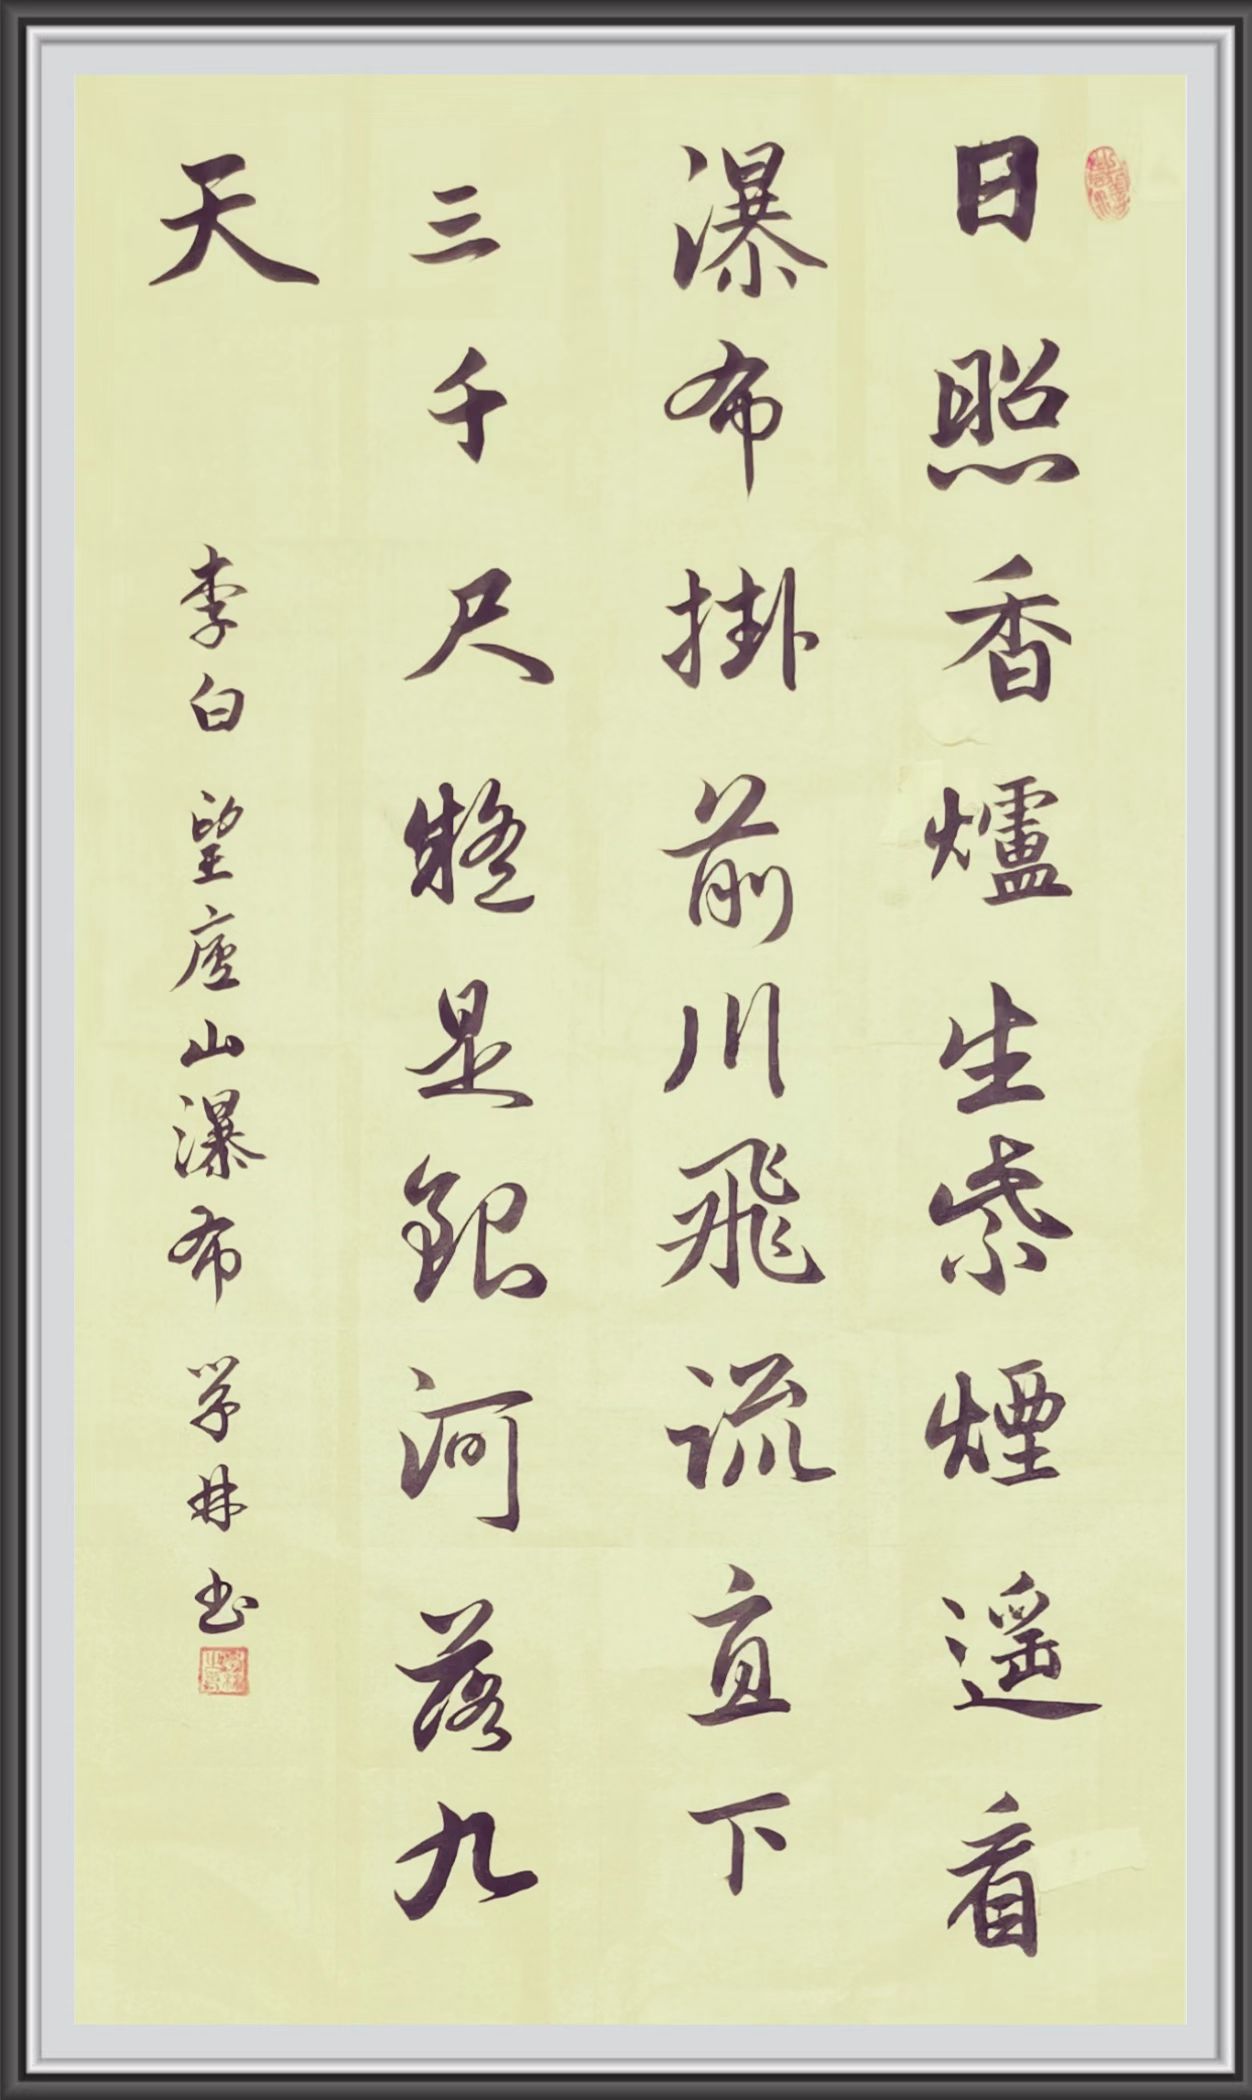 日照香爐生紫煙遙看
瀑布掛前川飛流直下
三千尺疑是銀河落九
天
李白望廬山瀑布 学林书